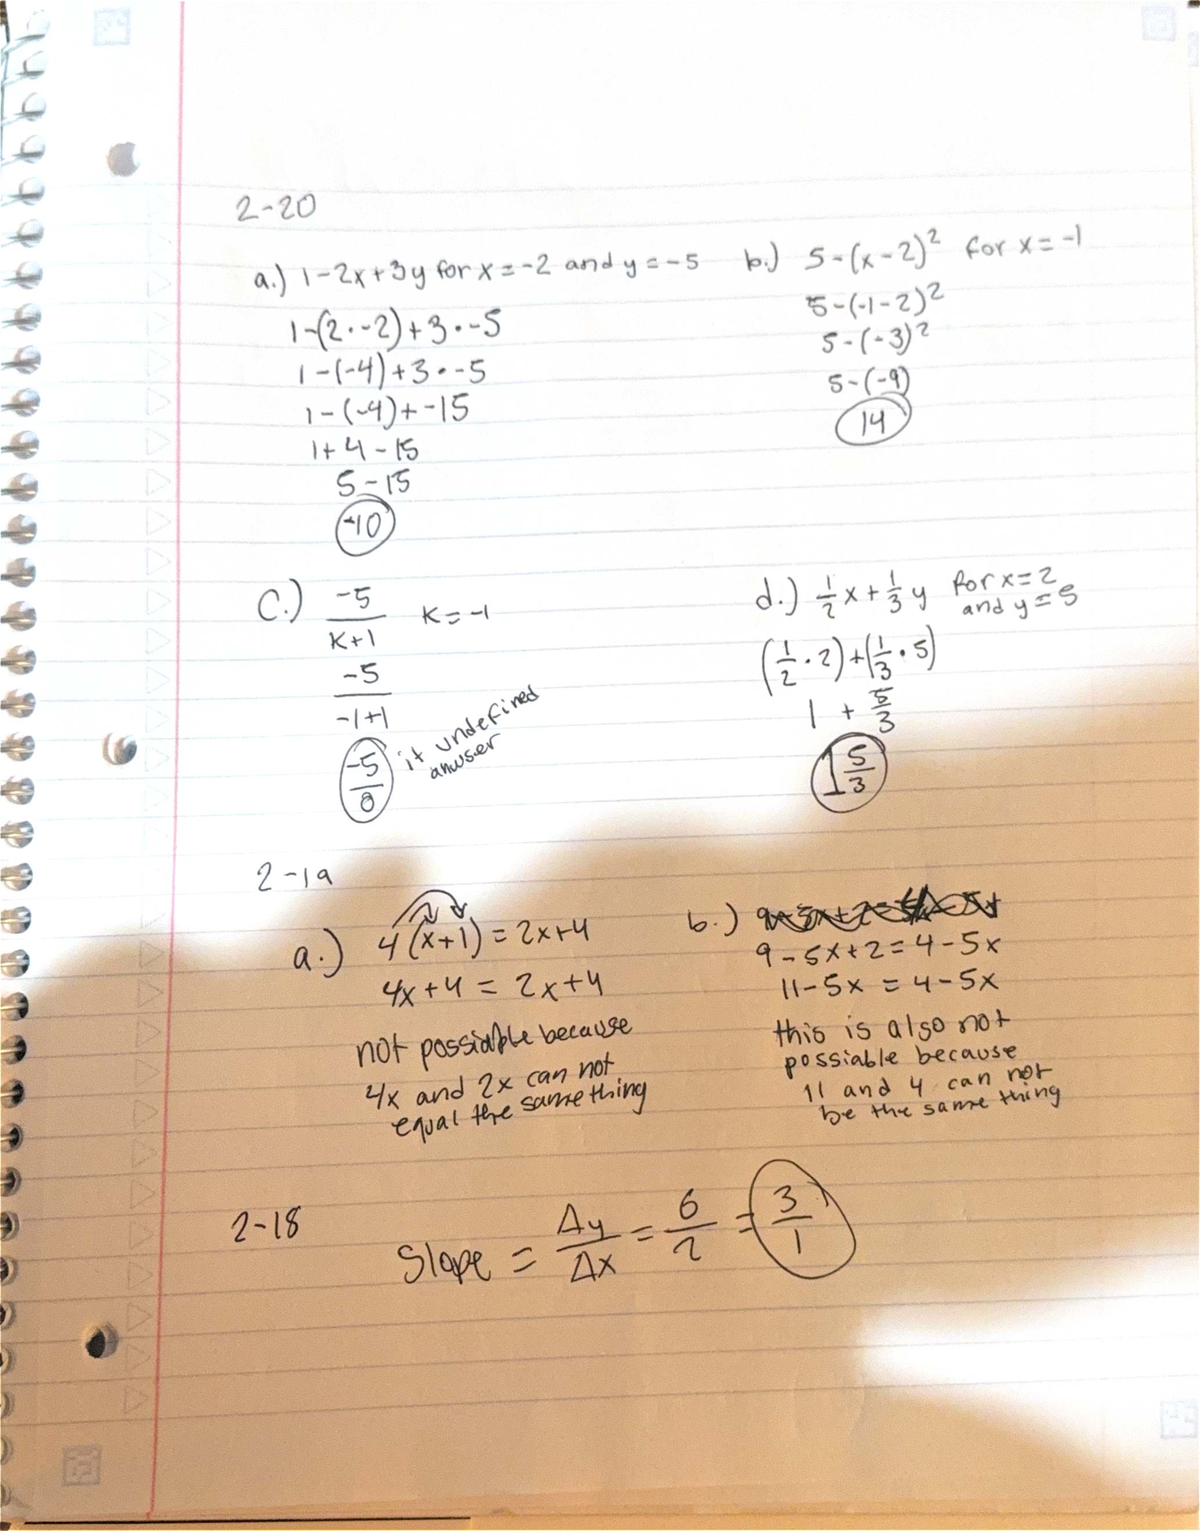 2-20
a.) 1-2x+3y for x=-2 and y=-5
1-(2·-2)+3·-5
1-(-4)+3·-5
1-(-4)+-15
1+4-15
5-15
-10
b.) 5-(x-2)² for x=-1
5-(-1-2)²
5-(-3)²
5-(-9)
14
c.) -5/k+1 k=-1
-5/-1+1
-5/0 it undefined
answer
d.) 1/2 x + 1/3 y for x=2
and y=5
(1/2·2)+(1/3·5)
1 + 5/3
1 5/3
2-19
a.) 4(x+1)=2x+4
4x+4=2x+4
not possiable because
4x and 2x can not
equal the same thing
b.)
9-5x+2=4-5x
11-5x=4-5x
this is also not
possiable because
11 and 4 can not
be the same thing
2-18
Slope = Δy/Δx = 6/2 = 3/1